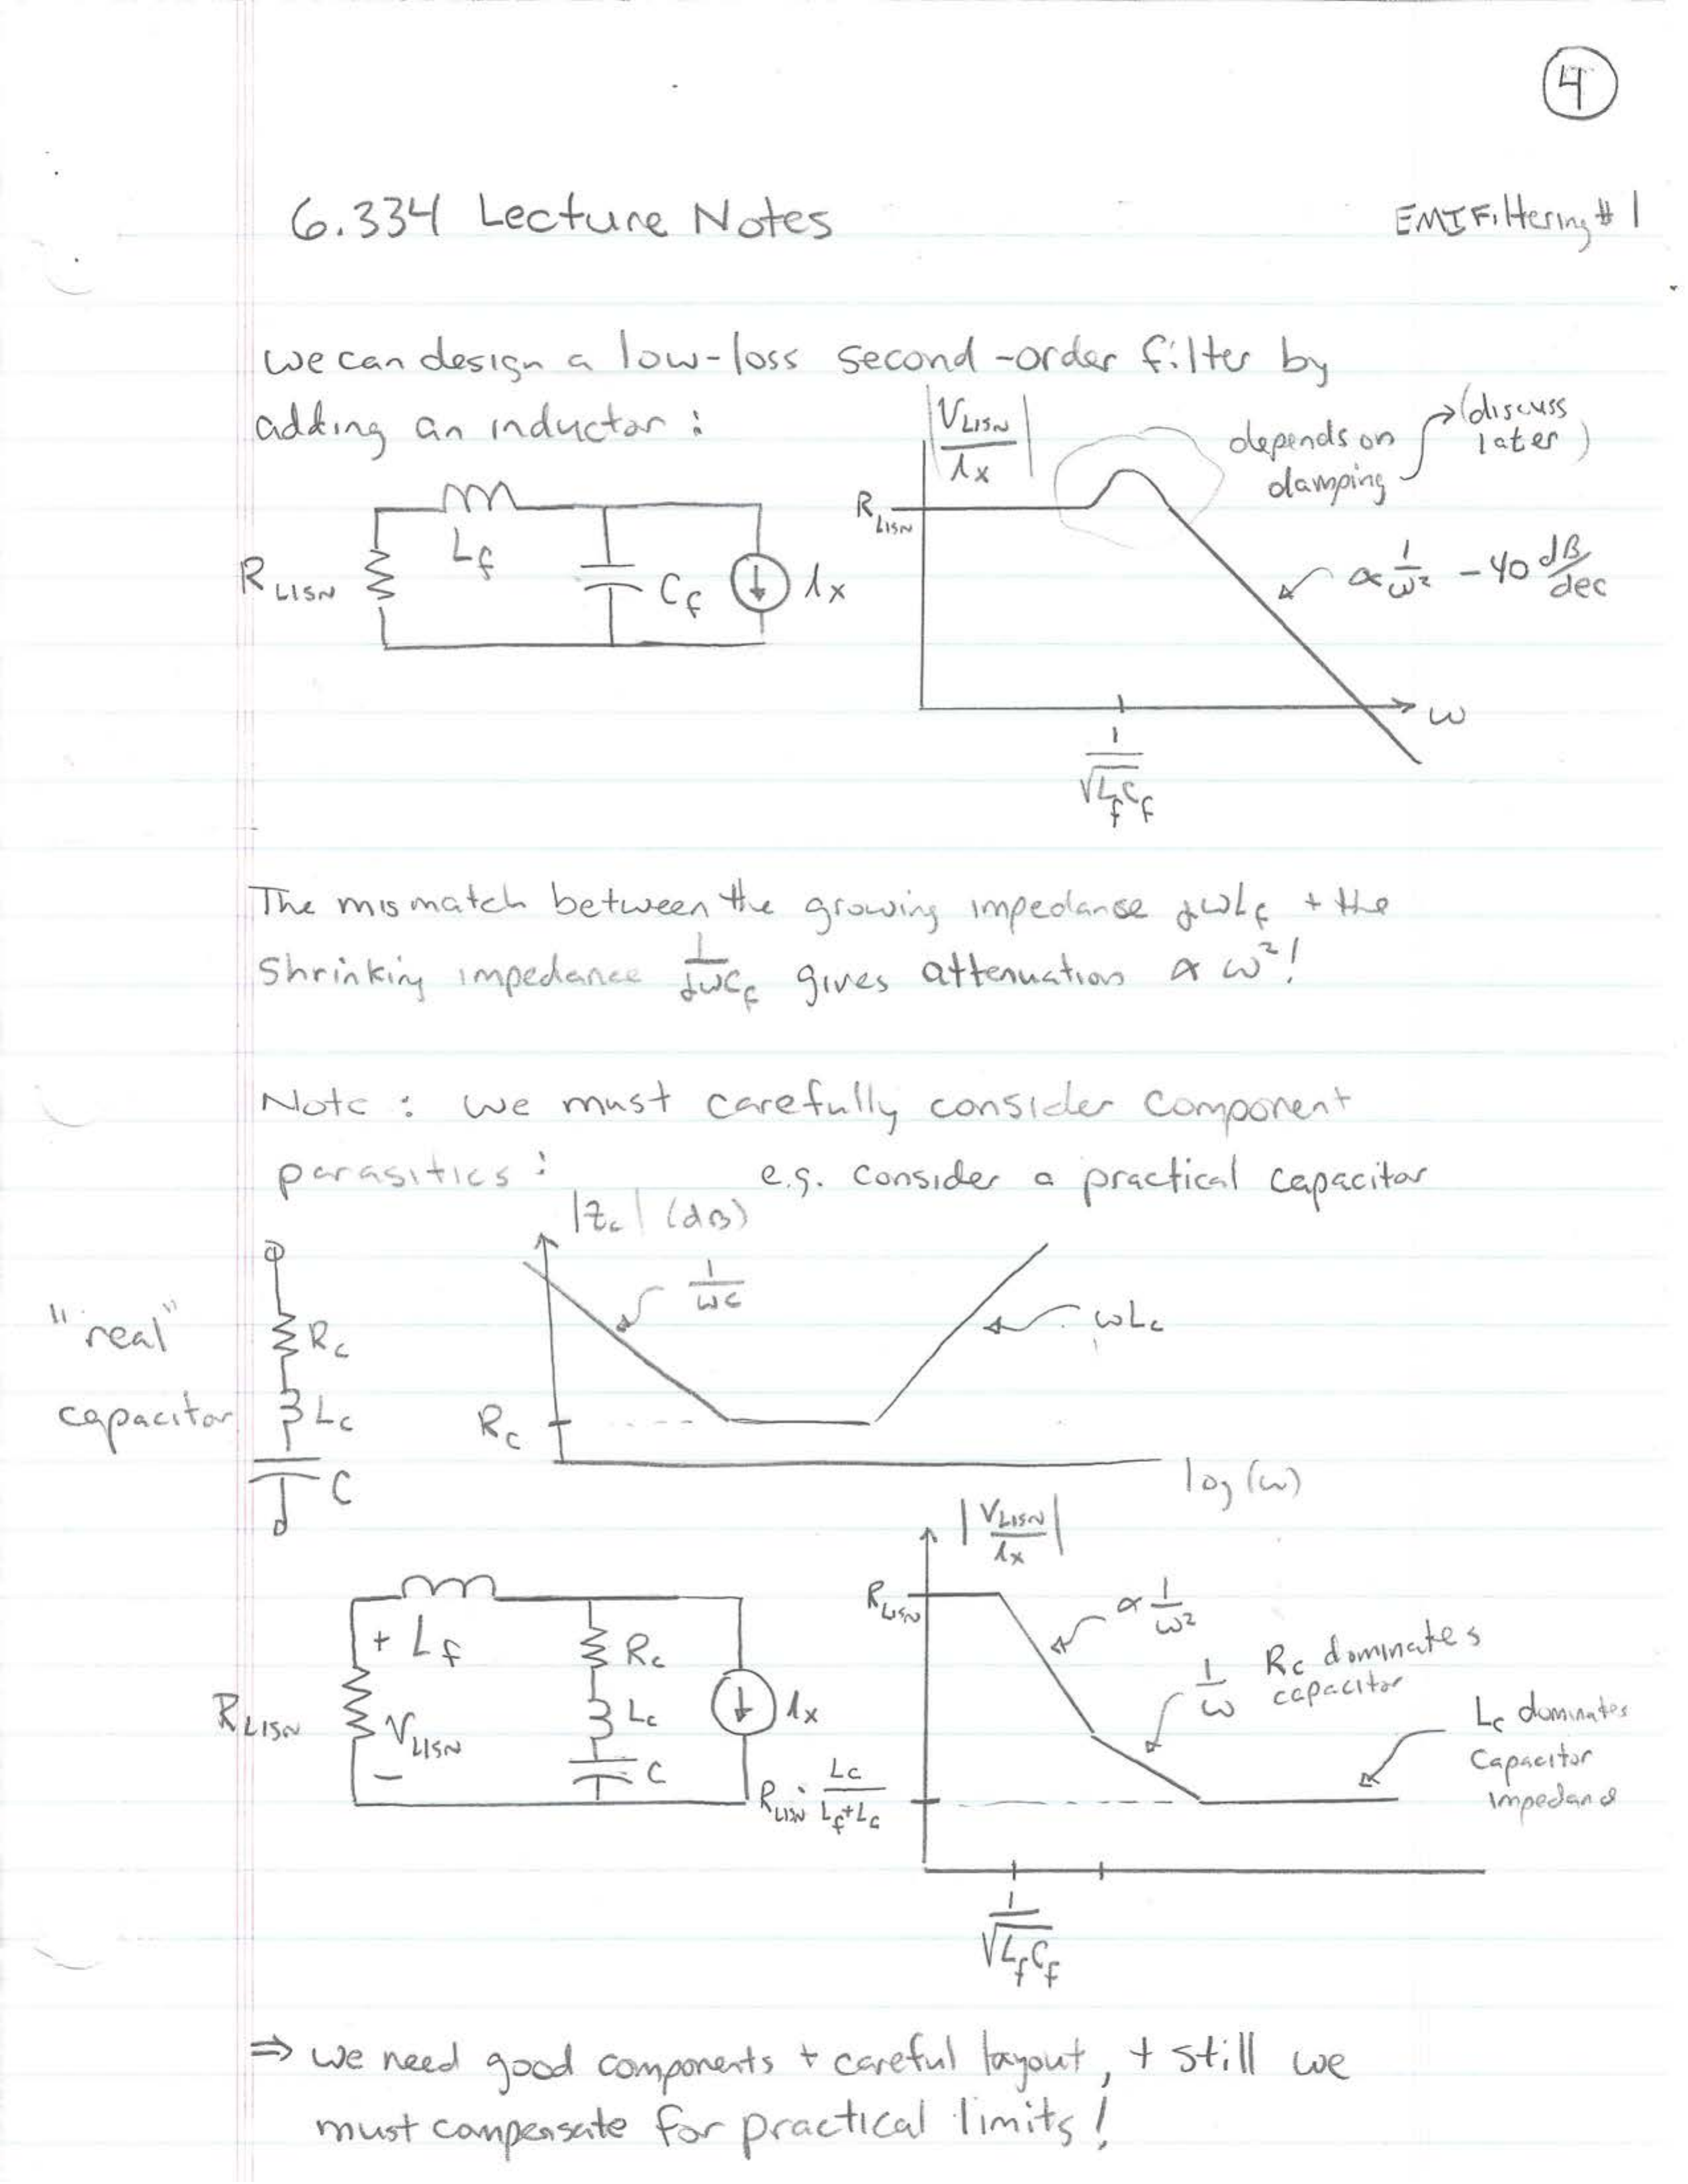 4
6.334 Lecture Notes
EMI Filtering # 1
we can design a low-loss second-order filter by
adding an inductor :
|V_LISN / i_x|
depends on damping → (discuss later)
R_LISN
L_f
C_f
i_x
R_LISN
∝ 1/ω² -40 dB/dec
ω
1/√(L_f C_f)
The mismatch between the growing impedance jωL_f + the
shrinking impedance 1/jωC_f gives attenuation ∝ ω²!
Note : we must carefully consider component
parasitics :
e.g. consider a practical capacitor
|Z_c| (dB)
1/ωC
"real"
capacitor
R_c
L_c
C
ωL_c
R_c
log(ω)
|V_LISN / i_x|
R_LISN
+
L_f
V_LISN
-
R_c
L_c
C
i_x
R_LISN
∝ 1/ω²
1/ω R_c dominates
capacitor
L_c dominates
capacitor
impedance
R_LISN · L_c / L_f+L_c
1/√(L_f C_f)
⇒ we need good components + careful layout, + still we
must compensate for practical limits!